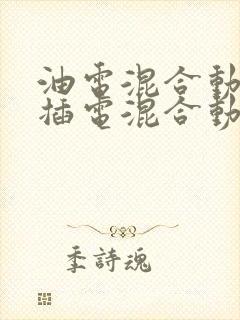 油電混合動
插電混合動
季詩魂